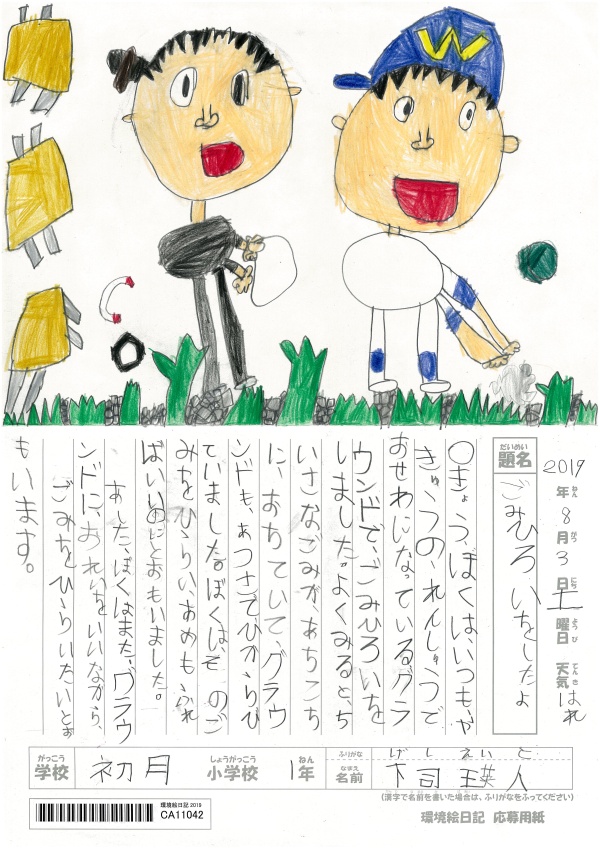 W
2019年8月3日土曜日 天気はれ
ねん がつ にち ようび てんき
だいめい
題名 ごみひろいをしたよ
○きょう、ぼくはいつも、や
きゅうの、れんしゅうで
おせわになっている、グラ
ウンドで、ごみひろいを
しました。よくみると、ち
いさなごみが、あちこち
に、おちていて、グラウ
ンドも、あつさで、ひからび
ていました。ぼくは、そのご
みをひろい、あめもふれ
ばいいのにとおもいました。
あした、ぼくはまた、グラウ
ンドに、おれいをいいながら、
ごみをひろいたいとお
もいます。
がっこう しょうがっこう ねん ふりがな げし えいと
学校 初月 小学校 1年 なまえ 名前 下司 瑛人
(漢字で名前を書いた場合は、ふりがなをふってください)
環境絵日記 2019
CA11042
環境絵日記 応募用紙